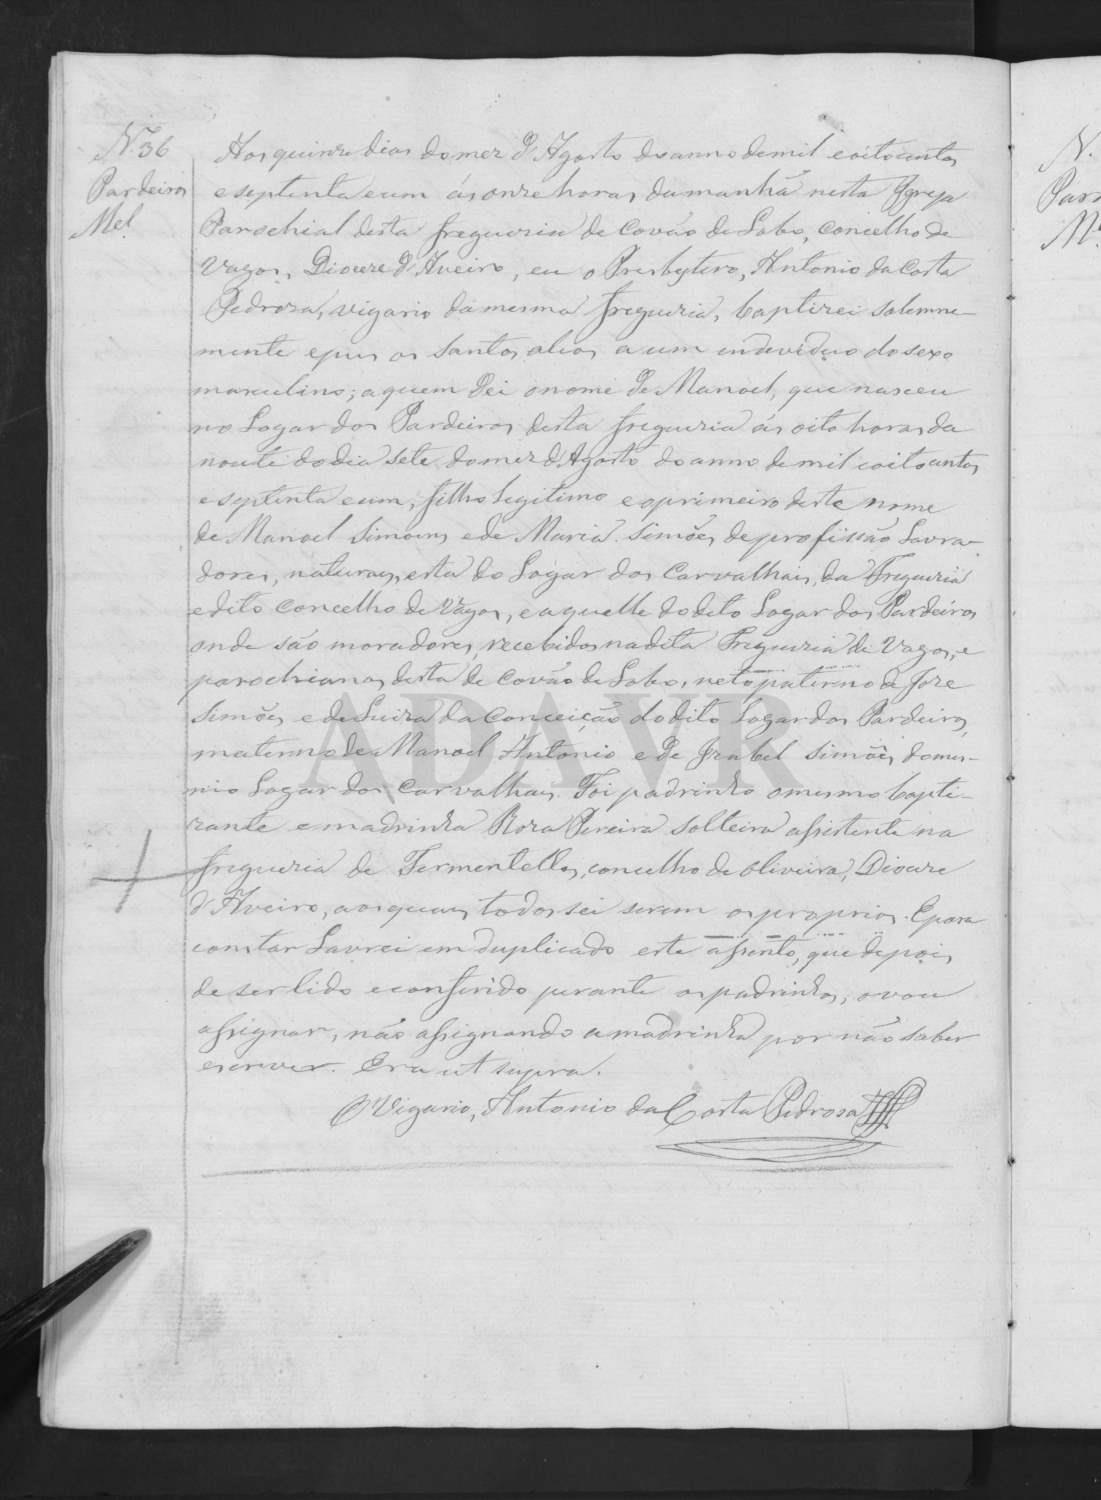 N. 36
Pardeiros
Mel.
Aos quinze dias do mez d'Agosto do anno de mil e oitocentos
e septenta e um ás onze horas da manhã nesta Igreja
Parochial desta freguezia de Covão de Lobo, Concelho de
Vagos, Diocese d'Aveiro, eu o Presbytero, Antonio da Costa
Pedroza, vigario da mesma freguezia, baptizei solemne-
mente e pus os santos oleos a um individuo do sexo
masculino; a quem dei o nome de Manoel, que nasceu
no Logar dos Pardeiros desta freguezia ás oito horas da
noute do dia sete do mez d'Agosto do anno de mil e oitocentos
e septenta e um, filho legitimo e o primeiro deste nome
de Manoel Simoens e de Maria Simões, de profissão Lavra-
dores, naturaes, esta do Logar dos Carvalhais, da Freguezia
e dito Concelho de Vagos, e aquelle do dito Logar dos Pardeiros
onde são moradores, recebidos na dita Freguezia de Vagos, e
parochianos desta de Covão de Lobo, neto paterno de Joze
Simões e de Luiza da Conceição do dito Logar dos Pardeiros,
materno de Manoel Antonio e de Izabel Simões, do mes-
mo Logar dos Carvalhais. Foi padrinho o mesmo bapti-
zante e madrinha Roza Pereira solteira assistente na
freguezia de Fermentellos, concelho de Oliveira, Diocese
d'Aveiro, aos quaes todos sei serem os proprios. E para
constar Lavrei em duplicado este assento, que depois
de ser lido e conferido perante os padrinhos, o vou
assignar, não assignando a madrinha por não saber
escrever. Era ut supra.
O Vigario, Antonio da Costa Pedrosa
ADAVR
N.
Pard
M